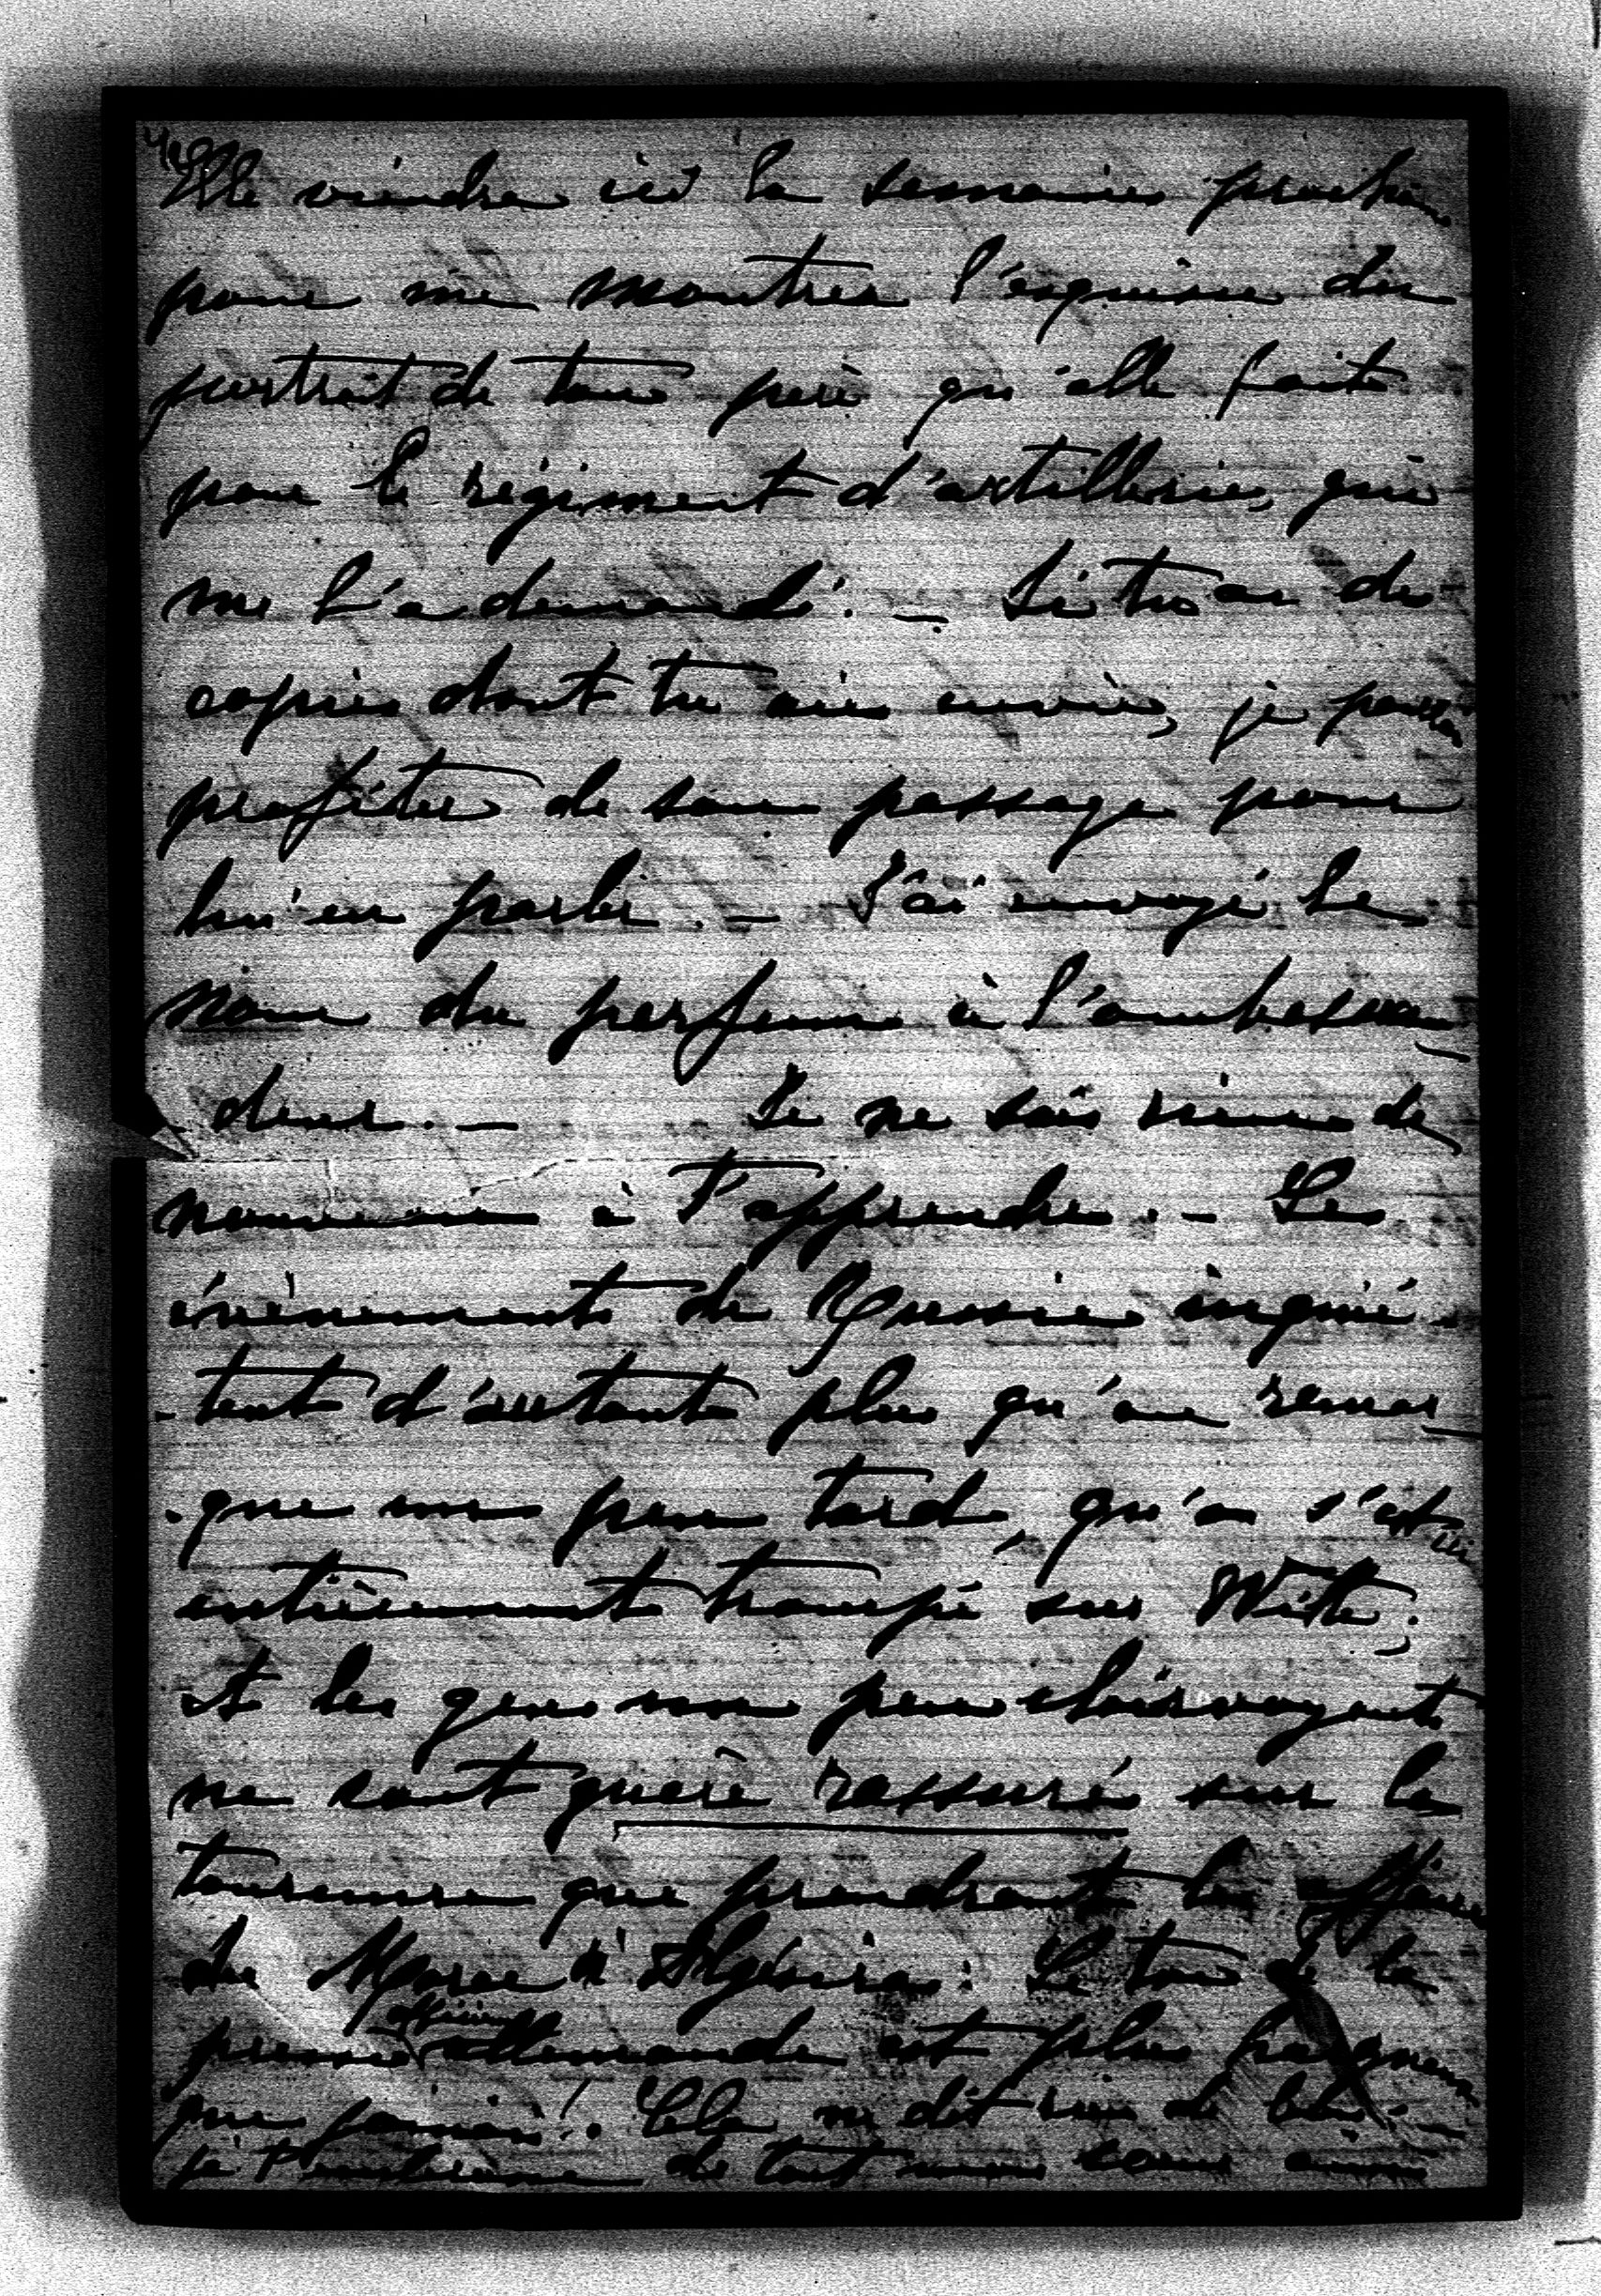 Elle viendra ici la semaine prochaine
pour me montrer l'esquisse du
portrait de ton père qu'elle fait
pour le régiment d'artillerie, qui
me l'a demandé. — Si tu as de
copies dont tu aies envie, je pourrai
profiter de son passage pour
lui en parler. — J'ai envoyé le
nom du parfum à l'ambassa-
deur. — Je ne sais rien de
nouveau à t'apprendre. — Les
événements de Russie inquiè-
-tent d'autant plus qu'on remar-
-que un peu tard, qu'on s'est
entièrement trompé sur Witte;
et les gens un peu clairvoyants
ne sont guère rassurés sur la
tournure que prendront les affaires
du Maroc à Algésiras: Le ton de la
presse officieuse allemande est plus hargneux
que jamais! Cela ne dit rien de bon. —
je t'embrasse de tout mon coeur